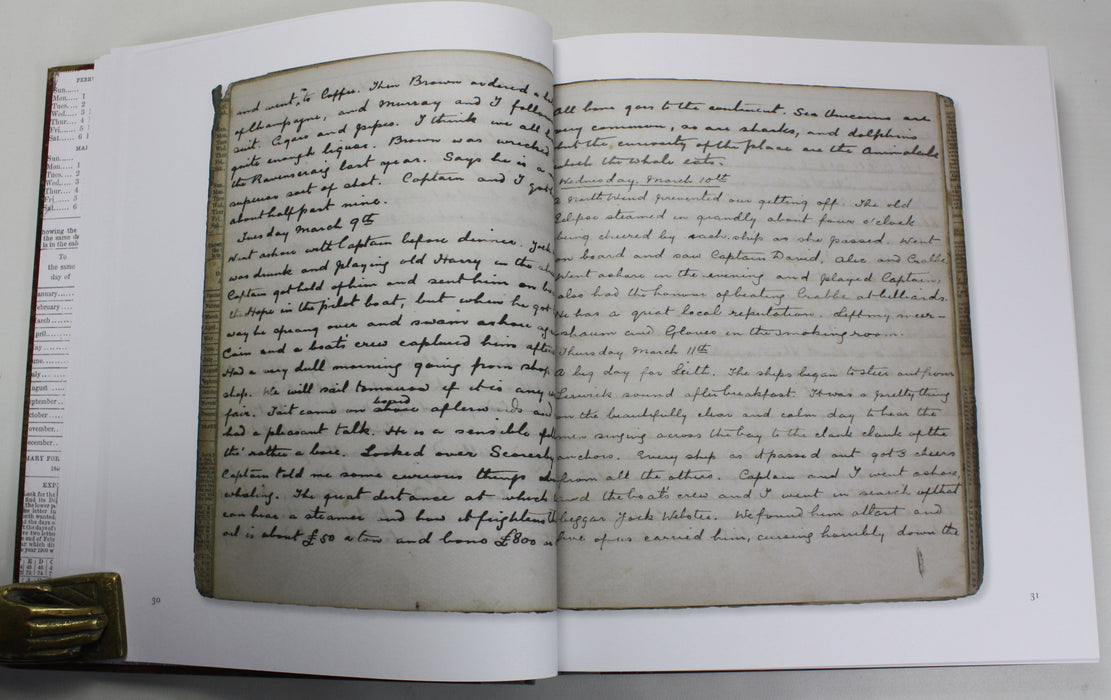 and went to Coffee. Then Brown ordered a
of champagne, and Murray and I follow
suit. Cigars and pipes. I think we all h
quite enough liquor. Brown was wrecked
the Ravenscraig last year. Says he is a
superior sort of shot. Captain and I got
about half past nine.
Tuesday March 9th
Went ashore with Captain before dinner. Jock
was drunk and playing old Harry in the
Captain got hold of him and sent him on bo
the Hope in the pilot boat, but when he got
way he sprang over and swam ashore
Cain and a boats' crew captured him after
Had a very dull morning going from shop
shop. We will sail tomorrow if it is any
fair. Tait came on board afterw ds and
had a pleasant talk. He is a sensible fel
tho' rather a bore. Looked over Scoresby
Captain told me some curious things
whaling. The great distance at which
can hear a steamer and how it frightens th
oil is about £50 a ton and bone £800
All bone goes to the continent. Sea Unicorns are
very common, so are sharks, and dolphins
but the curiosity of the place are the Animalculae
which the whale eats.
Wednesday, March 10th
A North Wind prevented our getting off. The old
Eclipse steamed in grandly about four o'clock
being cheered by each ship as she passed. Went
on board and saw Captain David, Alec and Crabbe
Went ashore in the evening and played Captain,
also had the honour of beating Crabbe at billiards.
He has a great local reputation. Left my meer-
shaum and Gloves in the smoking room.
Thursday March 11th
A big day for Leith. The ships began to steer out from
Lerwick sound after breakfast. It was a pretty thing
on the beautifully clear and calm day to hear the
men singing across the bay to the clank clank of the
anchors. Every ship as it passed out got 3 cheers
from all the others. Captain and I went ashore
and the boat's crew and I went in search of that
beggar Jock Webster. We found him at last and
five of us carried him, cursing horribly down the
30
31
FEBRU
Sun......
Mon.... 1
Tues.... 2
Wed.... 3
Thur.... 4
Fri...... 5
Sat...... 6
Sun......
Mon.... 1
Tues.... 2
Wed.... 3
Thur.... 4
Fri...... 5
Sat...... 6
howing the
the same
is in the
To
the same
day of